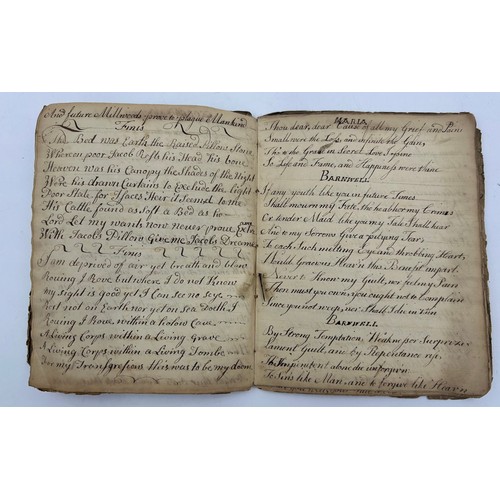 And future Millwoods prove to plague Mankind
Finis
The Bed was Earth the Raised Pillow Stone
Wherein poor Jacob Rests his Head his bone
Heaven was his Canopy the Shades of the Night
Were his drawn Curtains to Exclude the Light
Poor State for Isaacs Heir it seems to me
His Cattle found as Soft a Bed as he
Lord let my wants now never prove
With Jacobs Pillow Give me Jacobs Dreame
Finis
I am deprived of air yet breath and blare
Rouing I Rove but where I do not Know
My sight is Good yet I Can see no
Rest not on Earth nor yet on Sea Doath I
Rouing I Rove within a Cave
A Living Corps within a Living Grave
A Living Corps within a Living Tombe
For my Transgressions this was to be my doom
MARIA
Thou dear, dear Cause of all my Grief and Pain
Small were the Loss, and infinite the Gain,
Tho' in the Grave in Secret Love I pine
So Life and Fame, and Happiness were thine
BARNWELL
If any youth like you in future Times
Shall mourn my Fate, tho he abhor my Crimes
Or tender Maid like you my Tale Shall hear
And to my Sorrows Give a pitying Tear
To each Such melting Eye, and throbbing Heart,
Would Gracious Heaven this Benefit impart
Never to Know my Guilt, nor feel my Pain
Then must you own, you ought not to Complain
Since you nor weep, nor Shall I die in Vain
BARNWELL
By Strong Temptation, Weakness Surprize
Lament Guilt, and by Repentance rise
Th' Impenitent alone die unforgiven
To Sins like Man, and to forgive like Heaven